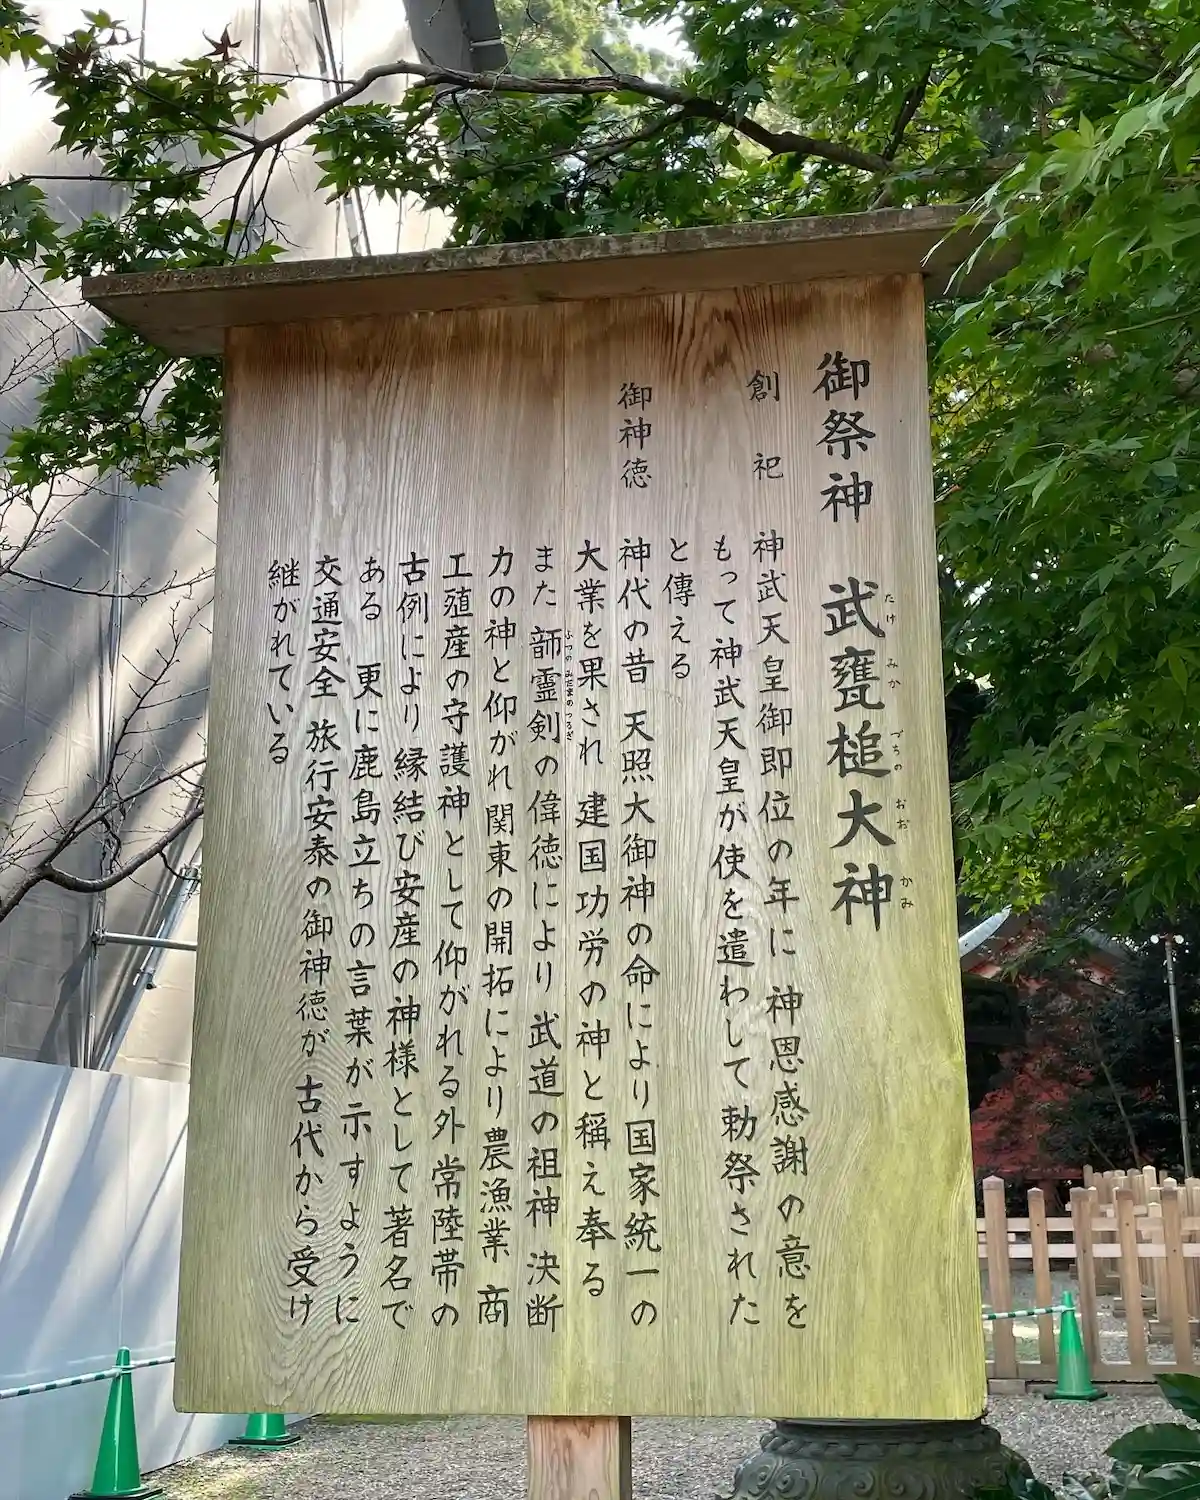 御祭神 武甕槌大神
たけ みか づちの おお かみ
創祀 神武天皇御即位の年に 神恩感謝の意を
もって神武天皇が使を遣わして勅祭された
と傳える
御神徳 神代の昔 天照大御神の命により国家統一の
大業を果され 建国功労の神と稱え奉る
また 韴霊剣の偉徳により 武道の祖神 決断
ふつのみたまのつるぎ
力の神と仰がれ関東の開拓により農漁業 商
工殖産の守護神として仰がれる外 常陸帯の
古例により縁結び安産の神様として著名で
ある 更に鹿島立ちの言葉が示すように
交通安全 旅行安泰の御神徳が 古代から受け
継がれている